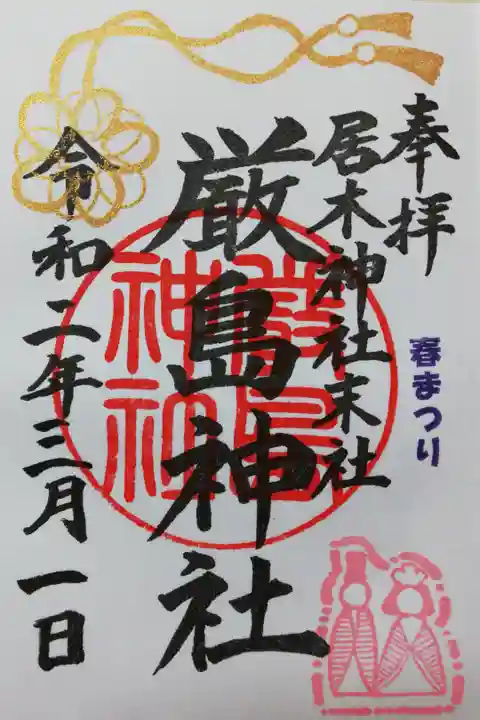 奉拝
春まつり
居木神社末社
厳島神社
嚴島
神社
令和二年三月一日